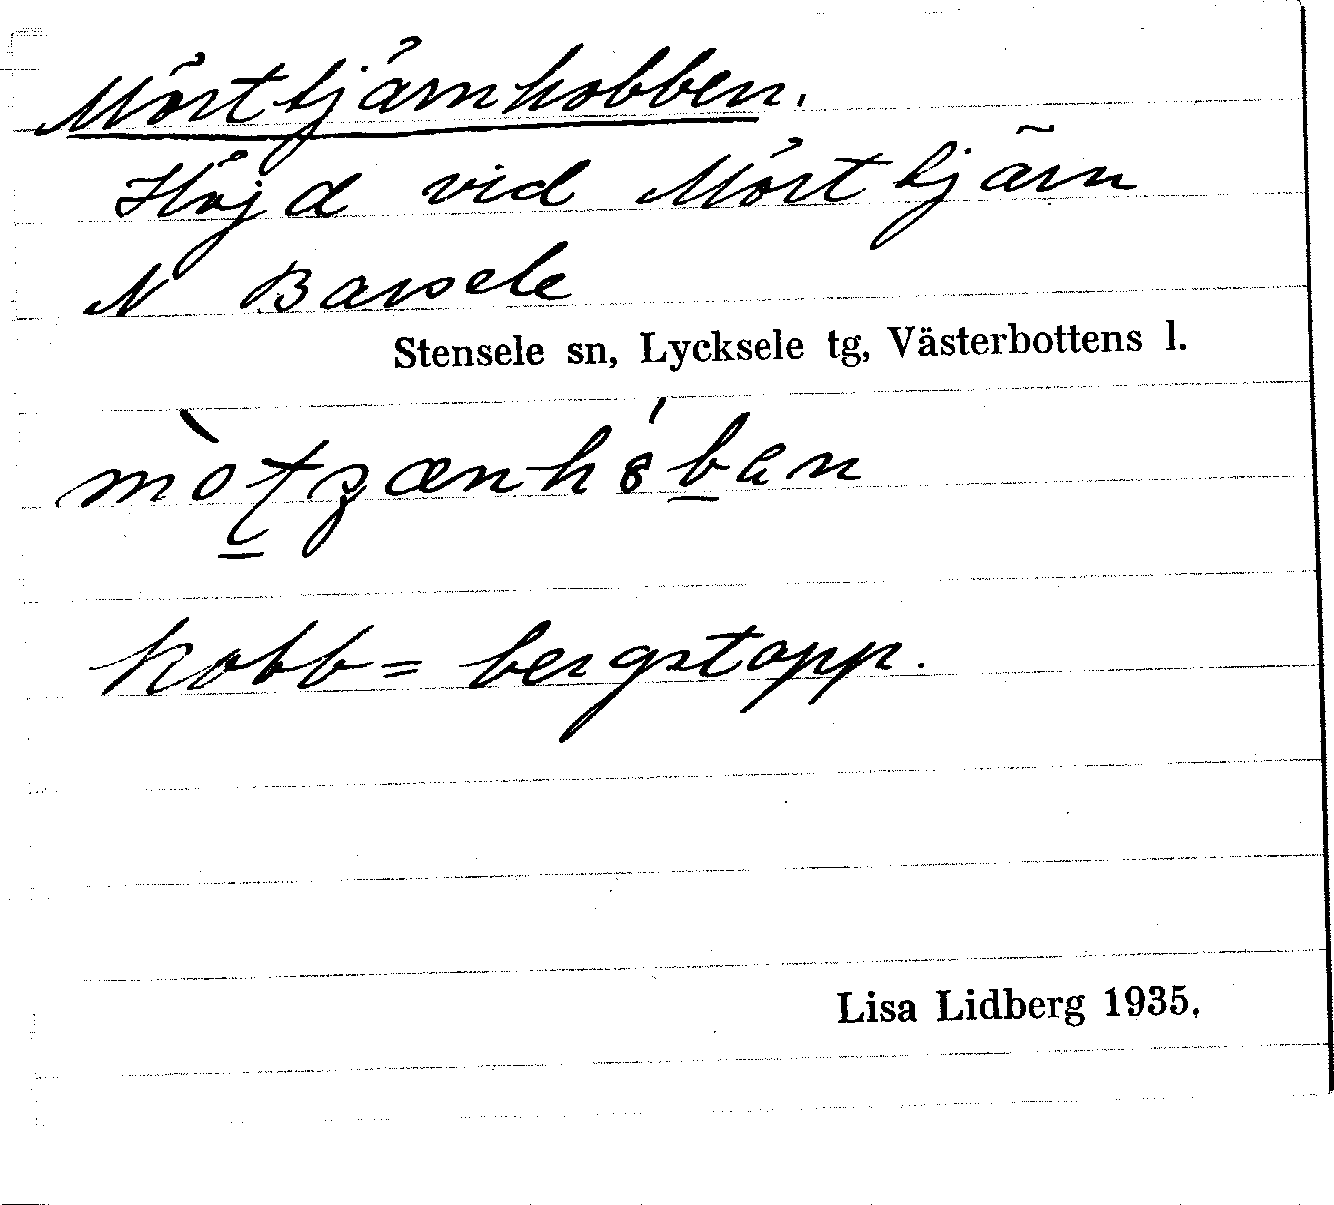 Mörttjärnkobben.
Höjd vid Mörttjärn
N Barsele
Stensele sn, Lycksele tg, Västerbottens l.
kobb = bergstopp.
Lisa Lidberg 1935.